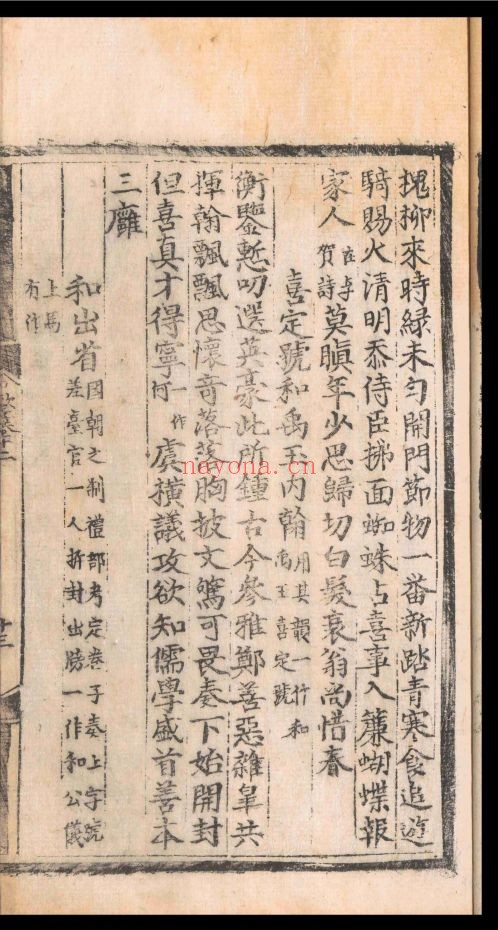 槐柳來時緑未勻開門節物一番新踏青寒食追遊
騎賜火清明忝侍臣拂面蜘蛛占喜事入簾蝴蝶報
家人在卓賀詩莫瞋年少思歸切白髮衰翁尚惜春
喜定號和禹玉内翰用其韻一作和禹玉喜定號
衡鑒慙叨選英豪此所鍾古今參雅鄭善惡雜皐共
揮翰飄飄思懷竒落落胸披文驚可畏奏下始開封
但喜真才得寧一作何虞横議攻欲知儒學盛首善本
三廱
和出省國朝之制禮部考定卷子奏上字號差臺官一人拆封出牓一作和公儀
上馬有作
navona.cn
十三